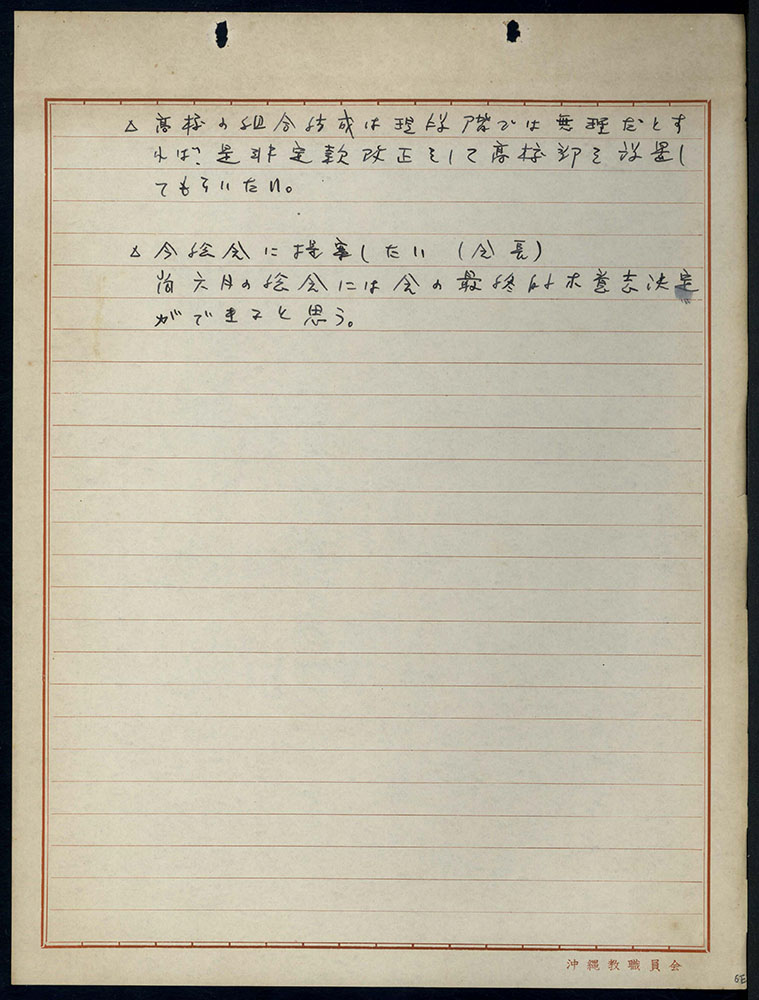 △ 高校の組合結成は現段階では無理だとす
れば、是非定款改正をして高校部を設置し
てもらいたい。
△ 今総会に提案したい (会長)
尚六月の総会には会の最終的な意志決定
ができると思う。
沖縄教職員会